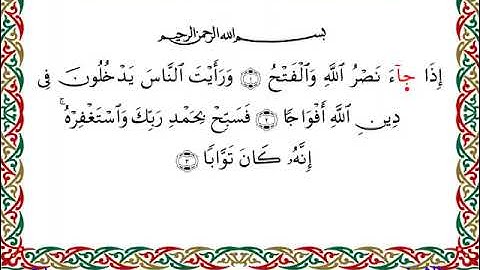 بسم الله الرحمن الرحيم
إِذَا جَآءَ نَصْرُ ٱللَّهِ وَٱلْفَتْحُ ۝١ وَرَأَيْتَ ٱلنَّاسَ يَدْخُلُونَ فِى
دِينِ ٱللَّهِ أَفْوَاجًا ۝٢ فَسَبِّحْ بِحَمْدِ رَبِّكَ وَٱسْتَغْفِرْهُ ۚ
إِنَّهُۥ كَانَ تَوَّابًا ۝٣